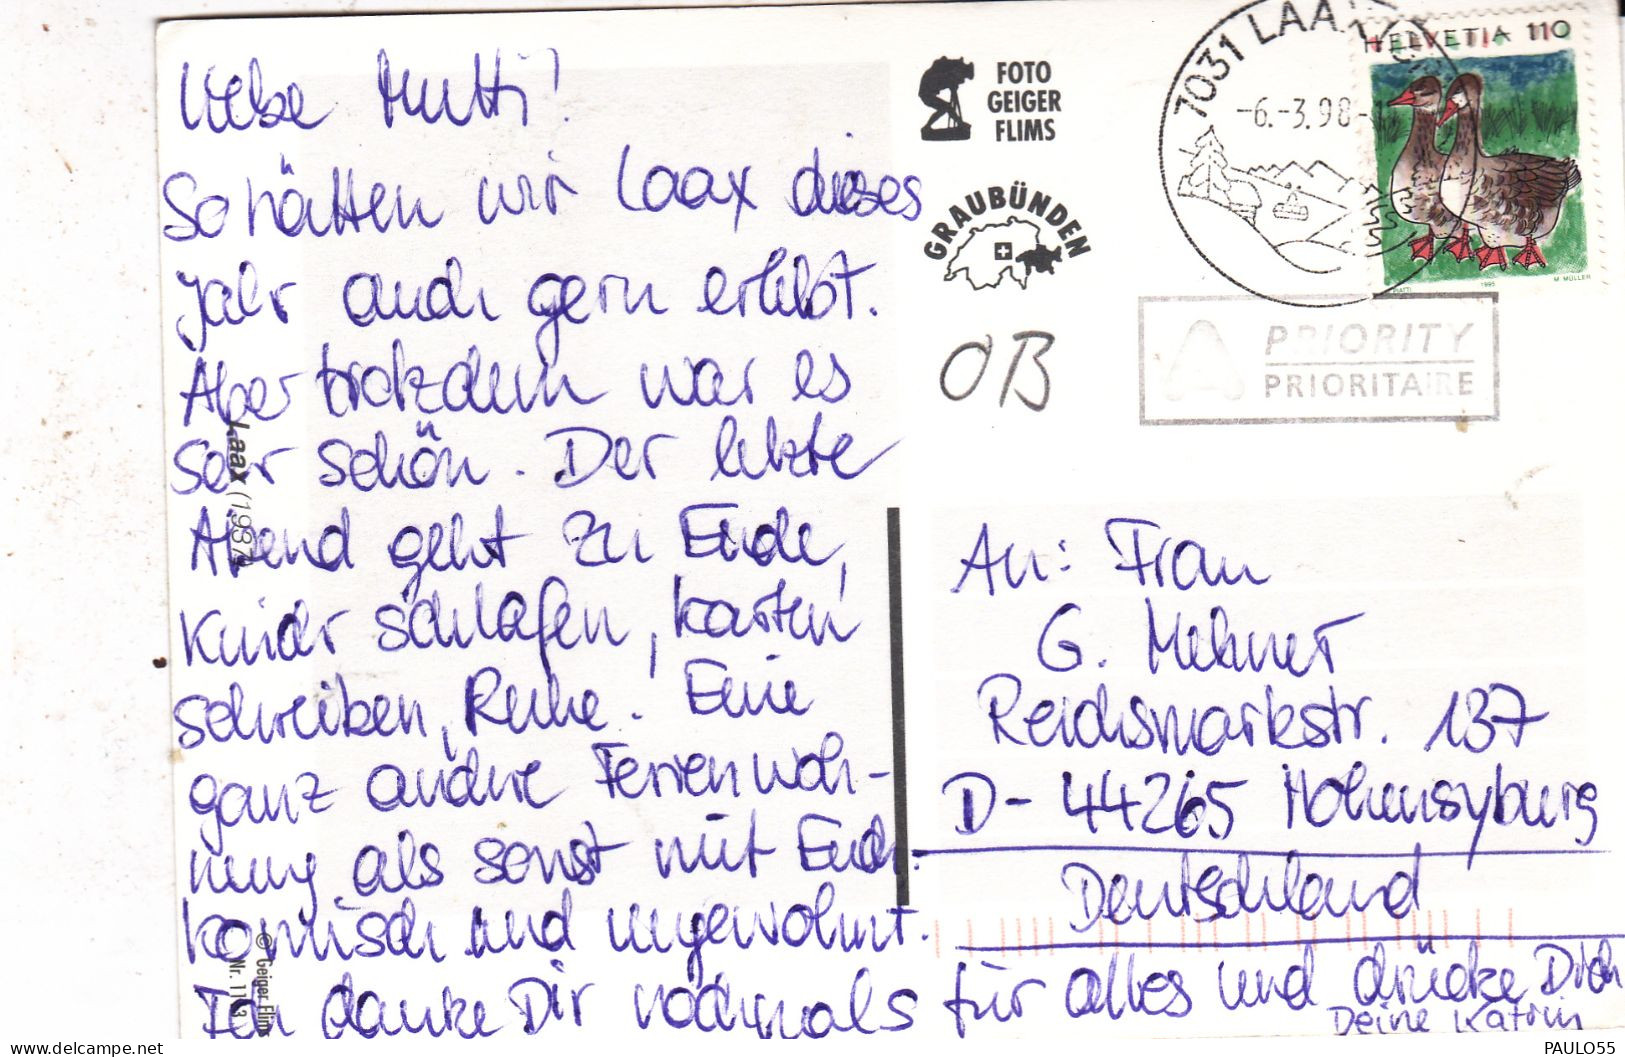 Liebe Mutti!
So hätten wir Laax dieses
Jahr auch gern erlebt.
Aber trotzdem war es
sehr schön. Der letzte
Abend geht zu Ende,
Kinder schlafen, Karten
schreiben, Ruhe. Eine
ganz andre Ferienwoh-
nung als sonst mit Euch:
komisch und ungewohnt.
Ich danke Dir nochmals für alles und drücke Dich
Deine Katrin
Laax (1987
© Geiger Flims
FOTO
GEIGER
FLIMS
GRAUBÜNDEN
OB
7031 LAAX
-6.-3.98-
HELVETIA 110
1995
M. MÜLLER
A PRIORITY
PRIORITAIRE
An: Frau
G. Mehner
Reichsmarkstr. 137
D-44265 Hohensyburg
Deutschland
delcampe.net
PAULO55